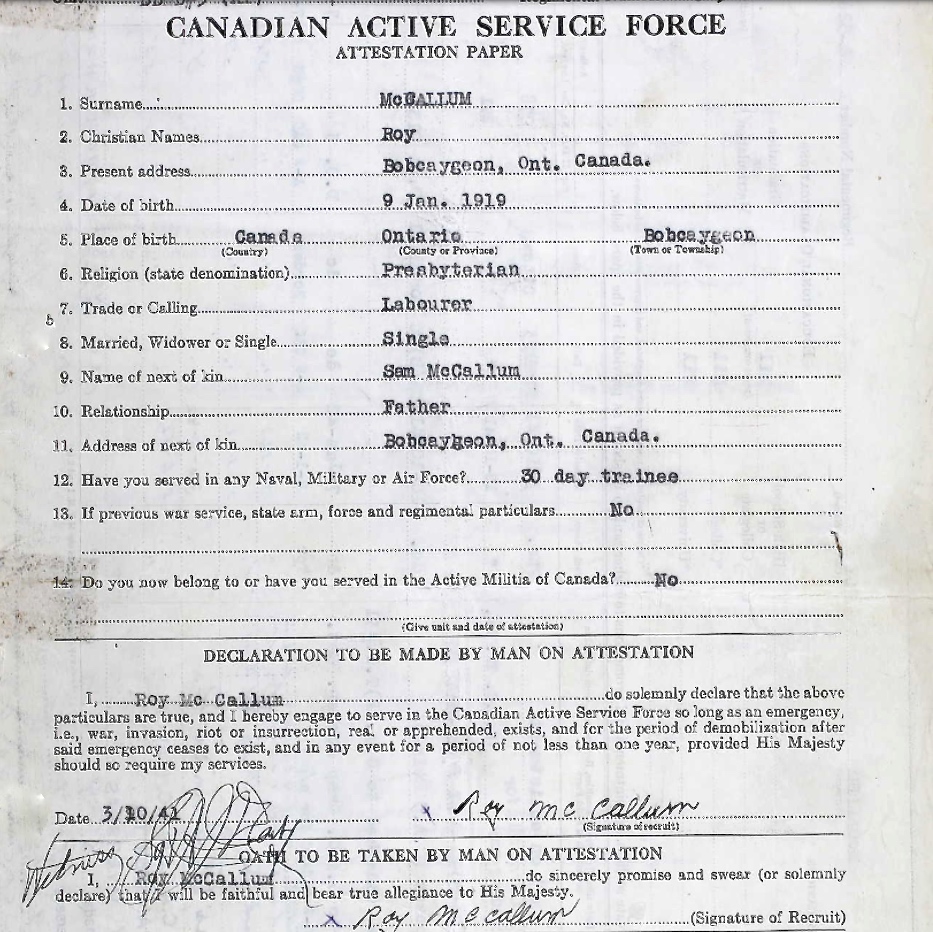 CANADIAN ACTIVE SERVICE FORCE
ATTESTATION PAPER
1. Surname McCALLUM
2. Christian Names Roy
3. Present address Bobcaygeon, Ont. Canada.
4. Date of birth 9 Jan. 1919
5. Place of birth Canada Ontario Bobcaygeon
(Country) (County or Province) (Town or Township)
6. Religion (state denomination) Presbyterian
7. Trade or Calling Labourer
8. Married, Widower or Single Single
9. Name of next of kin Sam McCallum
10. Relationship Father
11. Address of next of kin Bobcaygeon, Ont. Canada.
12. Have you served in any Naval, Military or Air Force? 30 day trainee
13. If previous war service, state arm, force and regimental particulars No
14. Do you now belong to or have you served in the Active Militia of Canada? No
(Give unit and date of attestation)
DECLARATION TO BE MADE BY MAN ON ATTESTATION
I, Roy Mc Callum do solemnly declare that the above
particulars are true, and I hereby engage to serve in the Canadian Active Service Force so long as an emergency,
i.e., war, invasion, riot or insurrection, real or apprehended, exists, and for the period of demobilization after
said emergency ceases to exist, and in any event for a period of not less than one year, provided His Majesty
should so require my services.
Date 3/10/41 x Roy Mc Callum
(Signature of recruit)
Witness
OATH TO BE TAKEN BY MAN ON ATTESTATION
I, Roy McCallum do sincerely promise and swear (or solemnly
declare) that I will be faithful and bear true allegiance to His Majesty.
x Roy McCallum (Signature of Recruit)